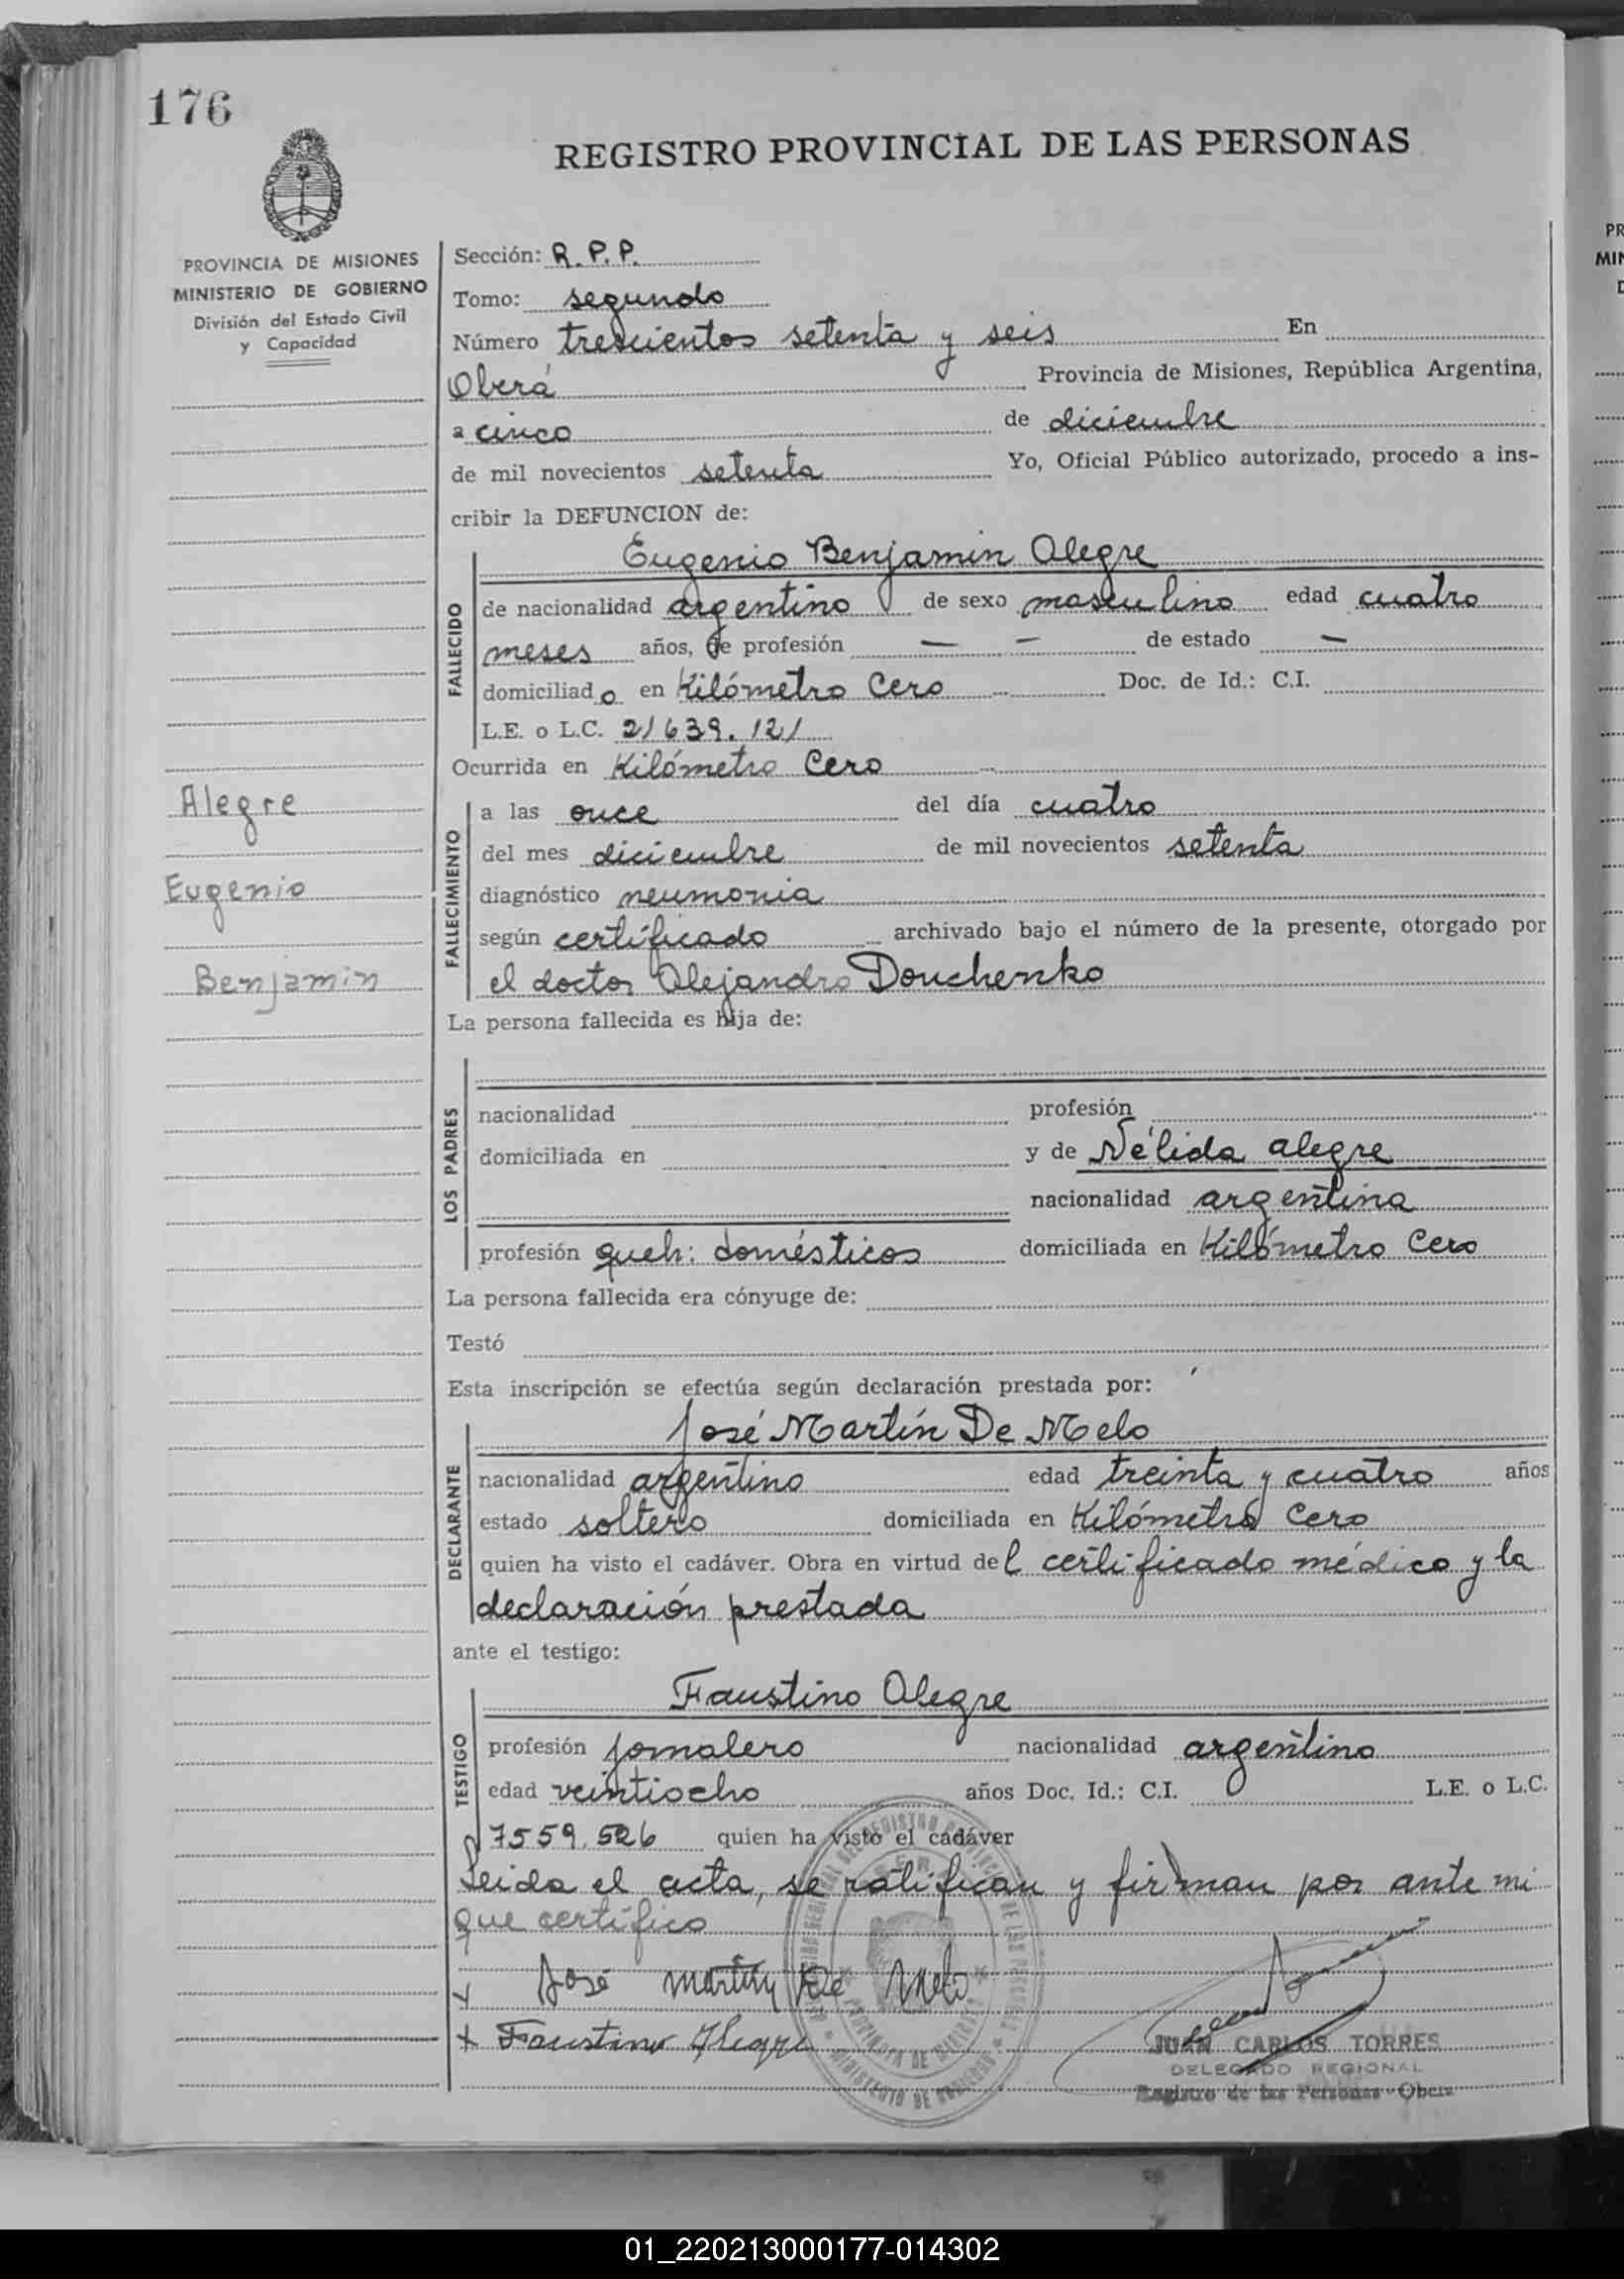 176
REGISTRO PROVINCIAL DE LAS PERSONAS
PROVINCIA DE MISIONES
MINISTERIO DE GOBIERNO
División del Estado Civil
y Capacidad
Sección: R.P.P.
Tomo: segundo
Número trescientos setenta y seis En
Oberá Provincia de Misiones, República Argentina,
a cinco de diciembre
de mil novecientos setenta Yo, Oficial Público autorizado, procedo a ins-
cribir la DEFUNCION de:
FALLECIDO
Eugenio Benjamin Alegre
de nacionalidad argentino de sexo masculino edad cuatro
meses años, de profesión — — de estado —
domiciliado en Kilómetro Cero Doc. de Id.: C.I.
L.E. o L.C. 21639.121
Ocurrida en Kilómetro Cero
Alegre
Eugenio
Benjamin
FALLECIMIENTO
a las once del día cuatro
del mes diciembre de mil novecientos setenta
diagnóstico neumonia
según certificado archivado bajo el número de la presente, otorgado por
el doctor Alejandro Douchenko
La persona fallecida es hija de:
LOS PADRES
nacionalidad profesión
domiciliada en y de Nélida Alegre
nacionalidad argentina
profesión queh: domésticos domiciliada en Kilómetro Cero
La persona fallecida era cónyuge de:
Testó
Esta inscripción se efectúa según declaración prestada por:
DECLARANTE
José Martín De Melo
nacionalidad argentino edad treinta y cuatro años
estado soltero domiciliada en Kilómetro Cero
quien ha visto el cadáver. Obra en virtud del certificado médico y la
declaración prestada
ante el testigo:
TESTIGO
Faustino Alegre
profesión jornalero nacionalidad argentino
edad veintiocho años Doc. Id.: C.I. L.E. o L.C.
7559.526 quien ha visto el cadáver
Leida el acta, se ratifican y firman por ante mi
que certifico
José Martín De Melo
Faustino Alegre
JUAN CARLOS TORRES
DELEGADO REGIONAL
Registro de las Personas - Oberá
PROVINCIA DE MISIONES
MINISTERIO DE GOBIERNO
01_220213000177-014302